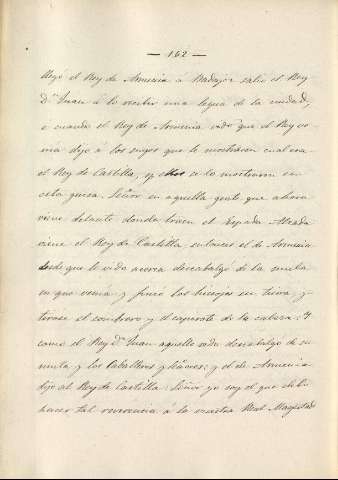 — 162 —
llegó el Rey de Armenia á Badajoz salio el Rey
D.n Juan á lo recibir una legua de la ciudad,
e cuando el Rey de Armenia vido que el Rey ve-
nia dijo á los suyos que le mostrasen cual era
el Rey de Castilla, y ellos se lo mostraron en
esta guisa. Señor en aquella gente que ahora
viene delante donde traen el Espada Alzada
viene el Rey de Castilla, entonces el de Armenia
desde que le vido acerca descabalgó de la mula
en que venia y fincó los hinojos en tierra, y
tirose el sombrero y el capirote de la cabeza: Y
como el Rey D.n Juan aquello vido descabalgó de su
mula y los Caballeros y Señores; y el de Armenia
dijo al Rey de Castilla: Señor yo soy el que debo
hacer tal reverencia á la vuestra Real Magestad